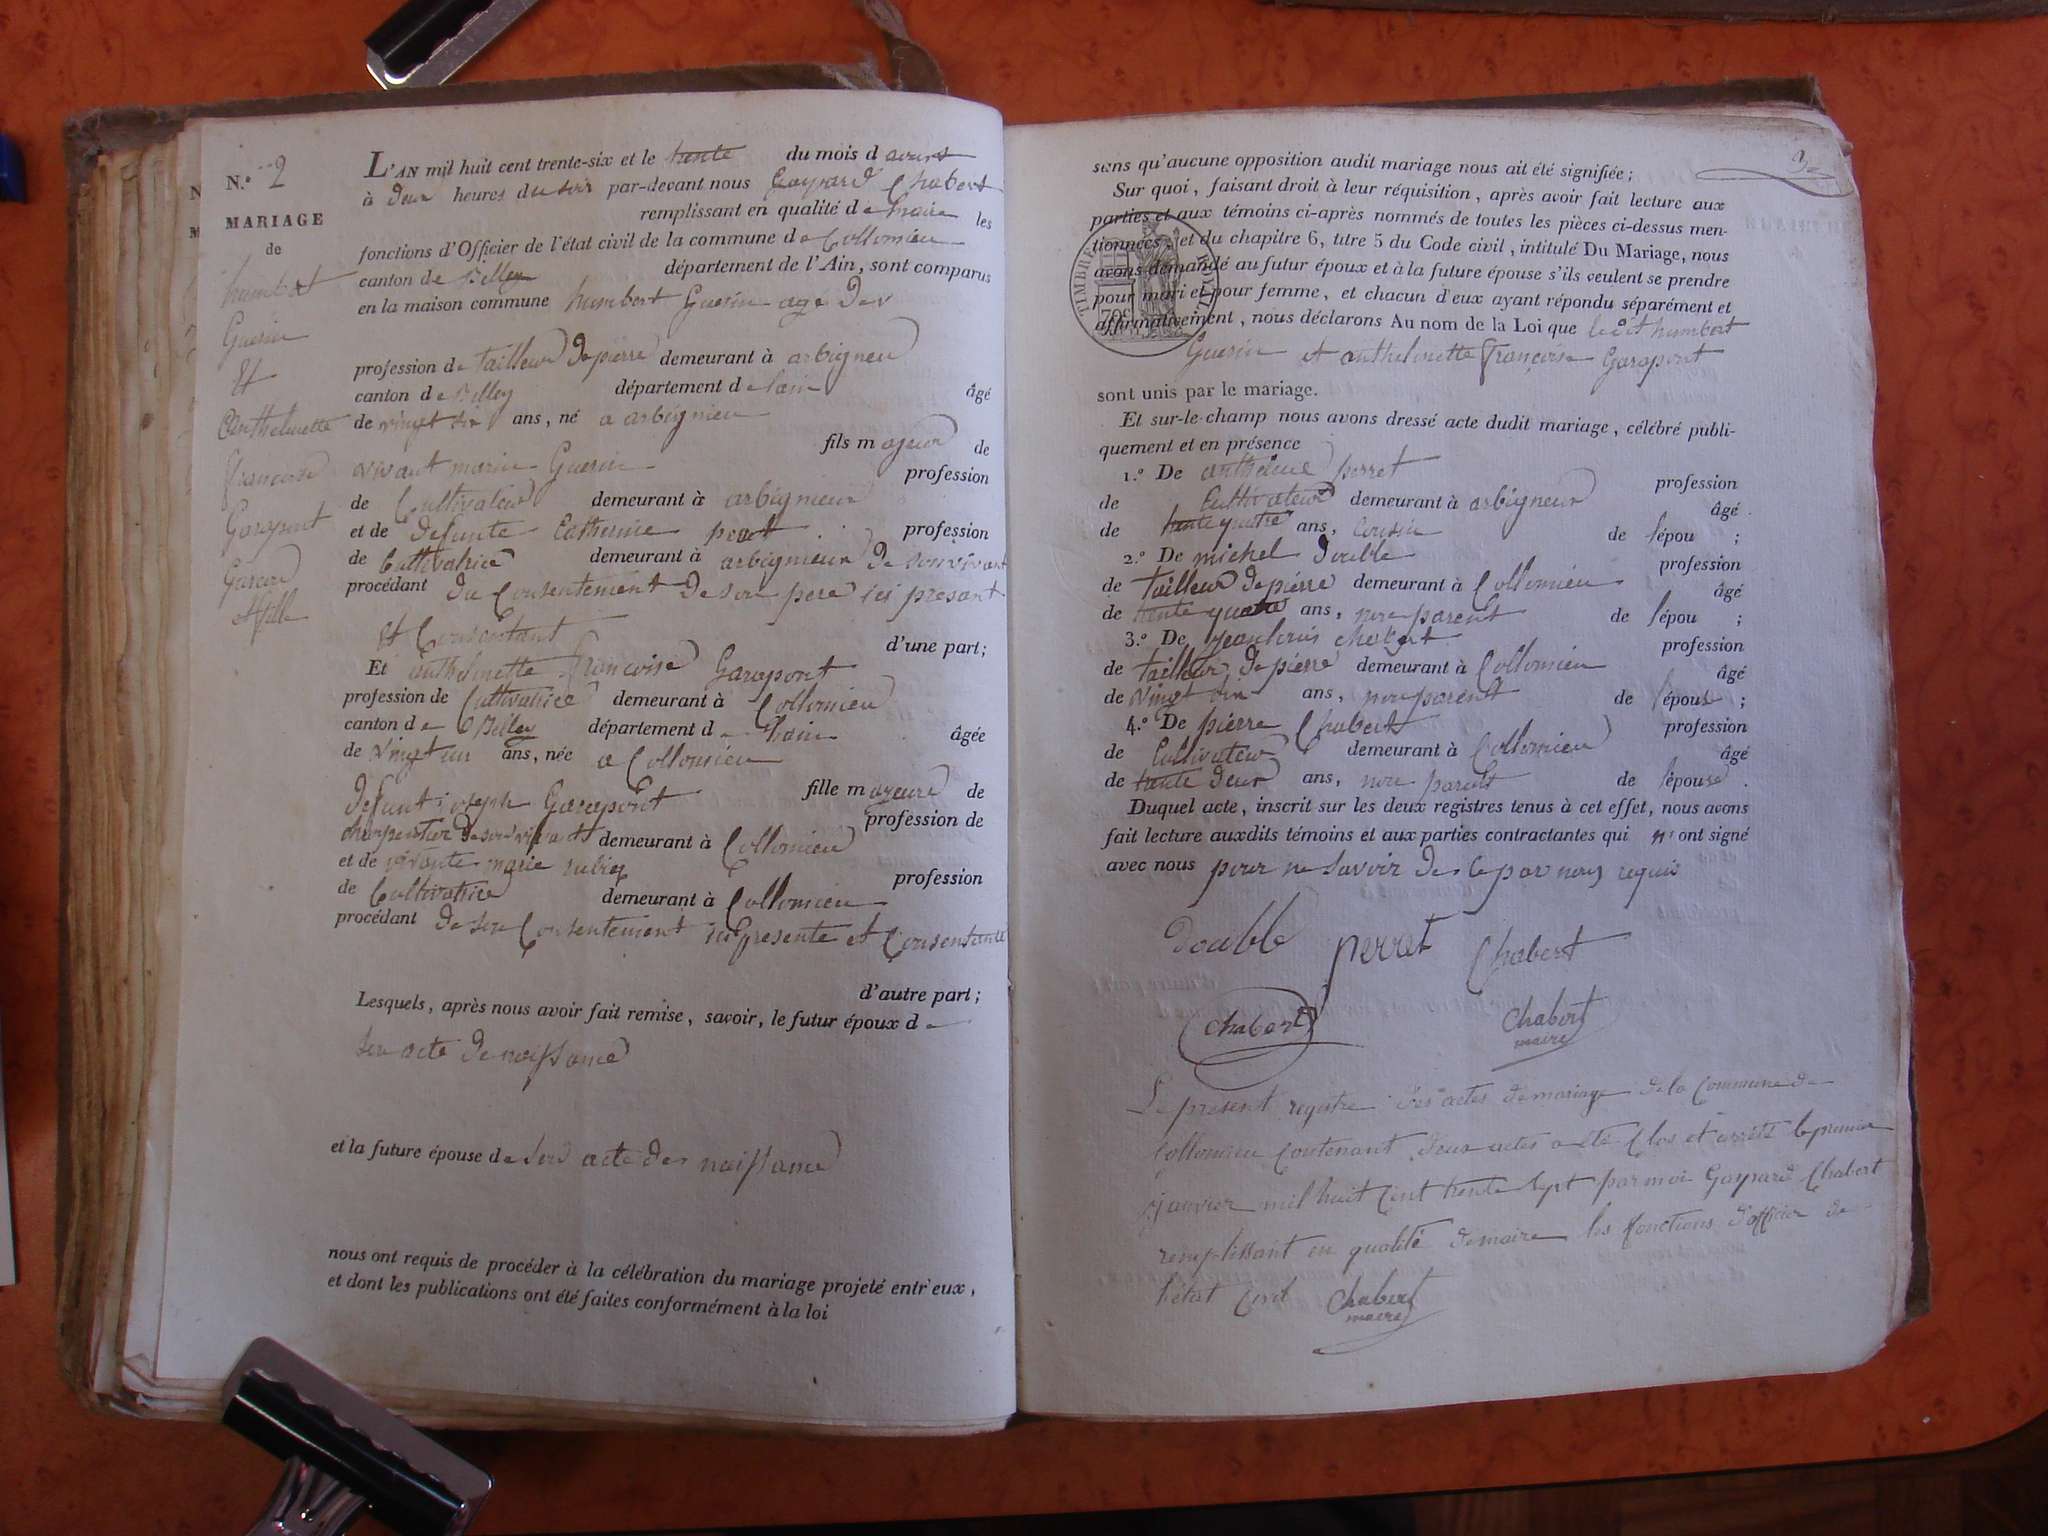 N.º 2
MARIAGE
de
humbert
Guerin
Et
Anthelmette
francoise
Garapont
Garcon
et fille
L'AN mil huit cent trente-six et le trente du mois d
à deux heures du soir par-devant nous Gaspard Chabert
remplissant en qualité de maire les
fonctions d'Officier de l'état civil de la commune de Collomieu
canton de Belley département de l'Ain, sont comparus
en la maison commune humbert Guerin agé de
profession de tailleur de pierre demeurant à arbigneu
canton de Belley département de lain âgé
de vingt six ans, né a arbignieu
fils majeur de
vivant marin Guerin profession
de Cultivateur demeurant à arbignieux
et de defunte Catherine profession
de Cultivatrice demeurant à arbignieux de son vivant
procédant du Consentement de son pere ici present
Et Consentant d'une part;
Et anthelmette francoise Garapont
profession de Cultivatrice demeurant à Collomieu
canton de Belley département de lain âgée
de vingt un ans, née a Collomieu
fille majeure de
defunt joseph Garapont profession de
charpentier de son vivant demeurant à Collomieu
et de vivante marie profession
de Cultivatrice demeurant à Collomieu
procédant de son Consentement ici presente et Consentante
d'autre part;
Lesquels, après nous avoir fait remise, savoir, le futur époux de
son acte de naissance
et la future épouse de son acte de naissance
nous ont requis de procéder à la célébration du mariage projeté entr'eux,
et dont les publications ont été faites conformément à la loi
sans qu'aucune opposition audit mariage nous ait été signifiée;
Sur quoi, faisant droit à leur réquisition, après avoir fait lecture aux
parties et aux témoins ci-après nommés de toutes les pièces ci-dessus men-
tionnées, et du chapitre 6, titre 5 du Code civil, intitulé Du Mariage, nous
avons demandé au futur époux et à la future épouse s'ils veulent se prendre
pour mari et pour femme, et chacun d'eux ayant répondu séparément et
affirmativement, nous déclarons Au nom de la Loi que ledit humbert
Guerin et anthelmette françoise Garapont
TIMBRE ROYAL
70c
sont unis par le mariage.
Et sur-le-champ nous avons dressé acte dudit mariage, célébré publi-
quement et en présence
1.º De anthelme perret profession
de Cultivateur demeurant à arbigneux âgé
de trente quatre ans, cousin de lépou ;
2.º De michel double profession
de tailleur de pierre demeurant à Collomieu âgé
de trente quatre ans, non parent de lépou ;
3.º De jean louis chabert profession
de tailleur de pierre demeurant à Collomieu âgé
de vingt six ans, non parent de lépouse ;
4.º De pierre Chabert profession
de Cultivateur demeurant à Collomieu âgé
de trente deux ans, non parent de lépouse .
Duquel acte, inscrit sur les deux registres tenus à cet effet, nous avons
fait lecture auxdits témoins et aux parties contractantes qui n'ont signé
avec nous pour ne savoir de ce par nous requis
double perret Chabert
Chabert Chabert
maire
Le present registre des actes de mariage de la Commune de
Collomieu Contenant deux actes a été Clos et arrêté le premier
janvier mil huit Cent trente sept par moi Gaspard Chabert
remplissant en qualité de maire les fonctions d'officier de
létat Civil Chabert
maire